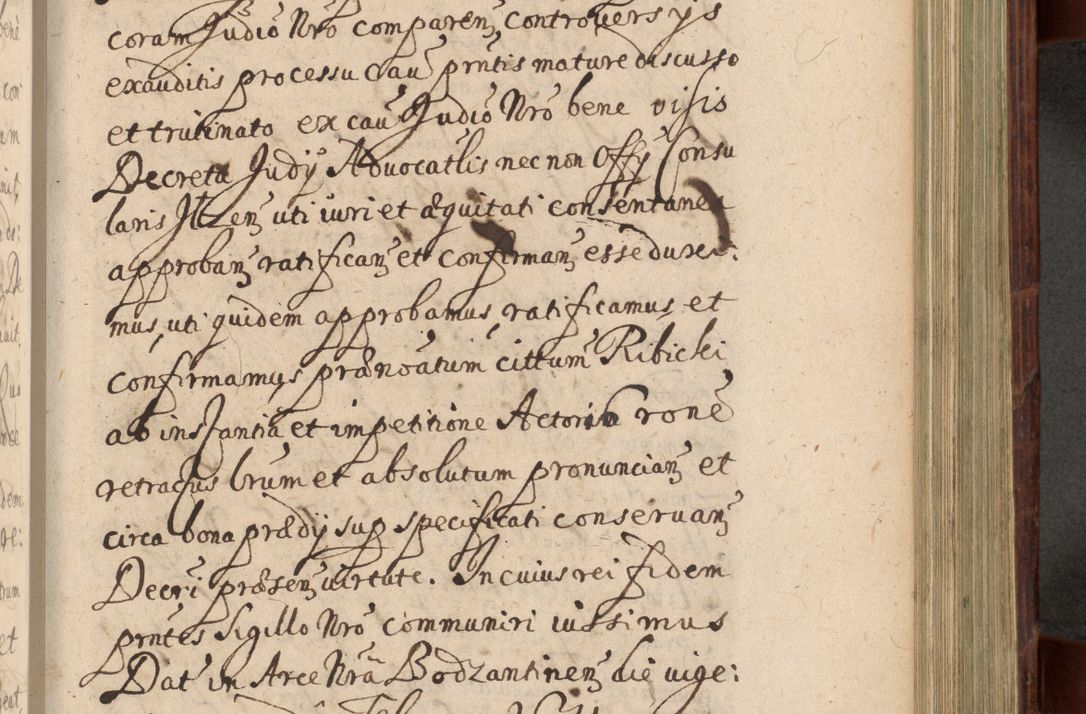 coram Judiō Nrō comparen, controversijs
exauditis processu cau prntis mature discusso
et trutinato ex cau Judiō Nrō bene visis
Decreta Judij Advocatlis nec non Offy Consu
laris Jlzen uti iuri et æquitati consentanea
approban ratifican et confirman esse duxi:
mus, uti quidem approbamus, ratificamus et
confirmamus prænoatum cittum Ribicki
ab instantia et impetitione Actoris rone
retractus brum et absolutum pronuncian et
circa bona prædij sup specificati conservan
Decri præsen virtute. In cuius rei fidem
prntes Sigillo Nrō communiri iussimus
Dat in Arce Nrā Bodzantinen die vige: